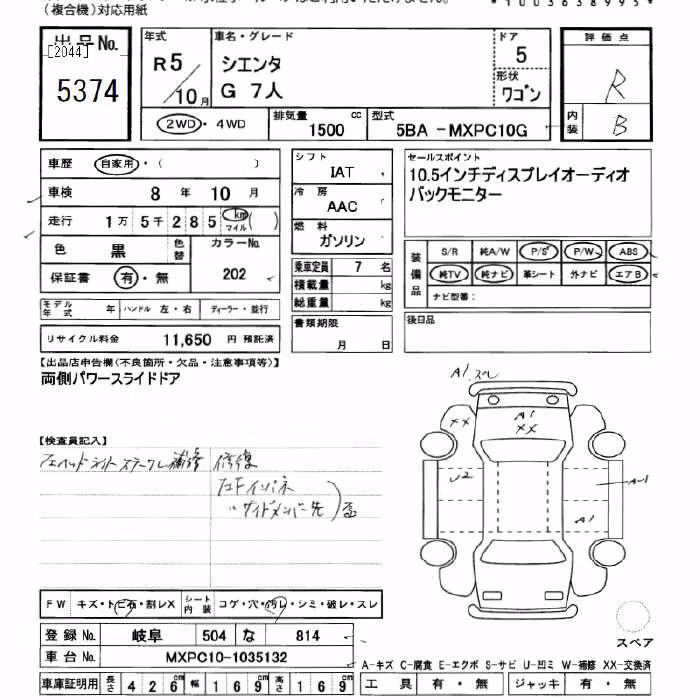 (複合機)対応用紙
出品No.
[2044]
5374
年式
R5/10月
車名・グレード
シエンタ
G 7人
ドア
5
形状
ワゴン
評価点
R
内装
B
2WD・4WD
排気量 1500 cc
型式 5BA -MXPC10G
車歴 自家用・( )
車検 8年 10月
走行 1万 5千 2 8 5 km マイル ( )
色 黒
色替
カラーNo.
202
保証書 有・無
モデル年式 年 ハンドル 左・右 ディーラー・並行
リサイクル料金 11,650 円 預託済
シフト
IAT
冷房
AAC
燃料
ガソリン
乗車定員 7 名
積載量 kg
総重量 kg
書類期限
月 日
セールスポイント
10.5インチディスプレイオーディオ
バックモニター
装備品
S/R 純A/W P/S P/W ABS
純TV 純ナビ 革シート 外ナビ エアB
ナビ型番:
後日品
【出品店申告欄(不良箇所・欠品・注意事項等)】
両側パワースライドドア
【検査員記入】
修復
A1
XX
A1
XX
U2
A1
FW キズ・トビ石・割レX
シート内装 コゲ・穴・汚レ・シミ・破レ・スレ
登録No. 岐阜 504 な 814
車台No. MXPC10-1035132
車庫証明用 長さ 426cm 幅 169cm 高さ 169cm
スペア
A-キズ C-腐食 E-エクボ S-サビ U-凹ミ W-補修 XX-交換済
工具 有・無 ジャッキ 有・無